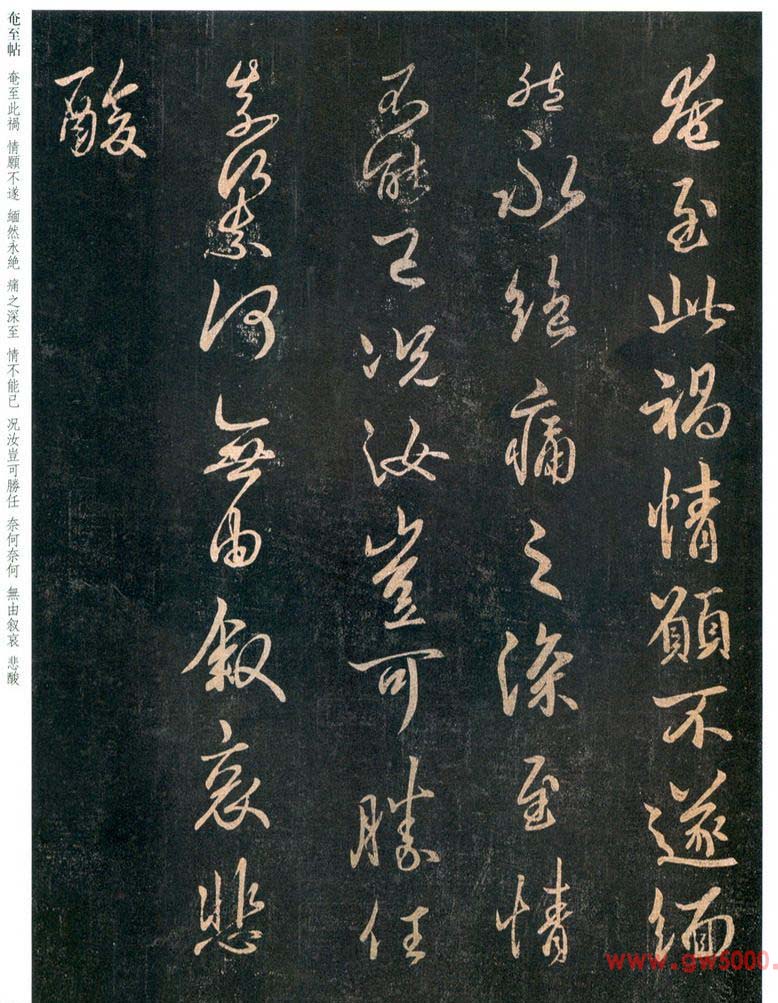 奄至此禍情願不遂緬
然永絶痛之深至情
不能已況汝豈可勝任
奈何奈何無由叙哀悲
酸
奄至帖 奄至此禍 情願不遂 緬然永絶 痛之深至 情不能已 况汝豈可勝任 奈何奈何 無由叙哀 悲酸
www.gw5000.